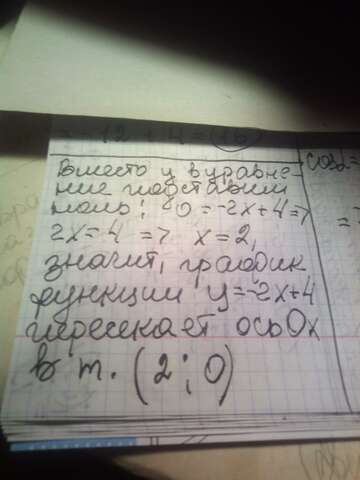 = 12 + 4 = 16
Вместо y в уравне-
ние подставим
ноль: 0 = -2x+4 =>
2x = 4 => x = 2,
значит, график
функции y = -2x+4
пересекает ось Ox
в т. (2; 0)
cosα =
=